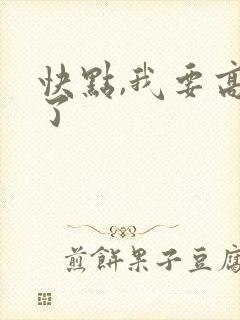 快點,我要高
了
煎餅果子豆腐